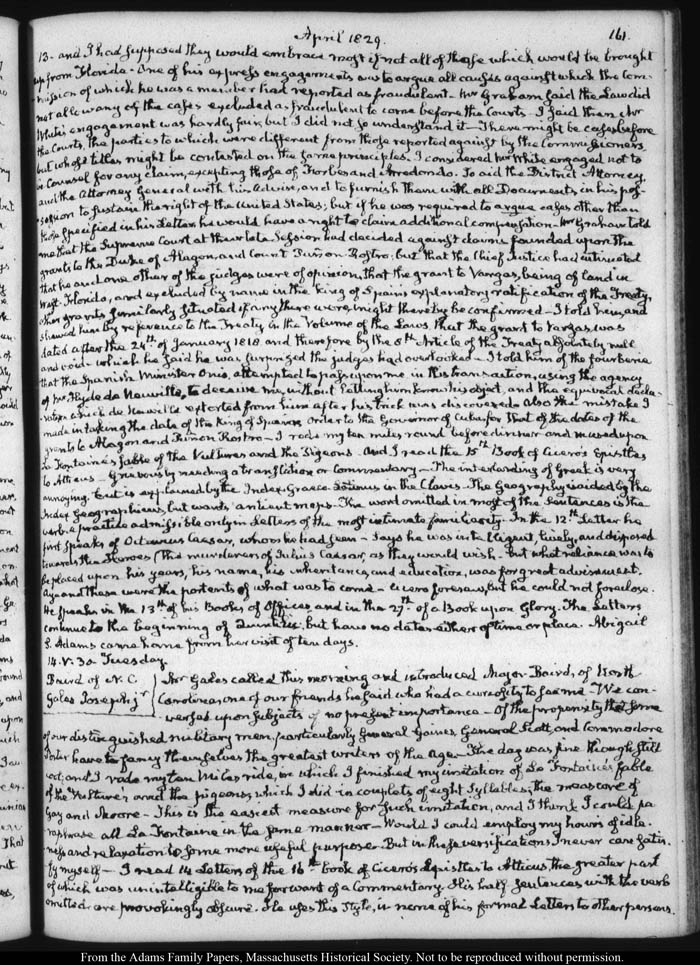 April 1829.
161.
13- and I had supposed they would embrace most if not all of those which would be brought
up from Florida - One of his express engagements was to argue all causes against which the Com-
mission of which he was a member had reported as fraudulent - Mr Graham said the Law did
not allow any of the cases excluded as fraudulent to come before the Courts - I said then Mr
White's engagement was hardly fair, but I did not so understand it - There might be cases before
the Courts, the parties to which were different from those reported against by the Commissioners
but whose titles might be contested on the same principles. I considered Mr White engaged not to
be Counsel for any claim, excepting those of Forbes and Arredondo. To aid the District Attorney,
and the Attorney General with his advise, and to furnish them with all Documents in his pos-
session to sustain the right of the United States; but if he was required to argue cases other than
those specified in his Letter he would have a right to claim additional compensation - Mr Graham told
me that the Supreme Court at their late Session had decided against claims founded upon the
grants to the Duke of Alagon, and Count Punon Rostro; but that the Chief Justice had intimated
that he and one other of the judges were of opinion, that the grant to Vargas, being of land in
West-Florida, and excluded by name in the King of Spain's explanatory ratification of the Treaty,
other grants similarly situated if any there were might thereby be confirmed - I told him, and
shewed him by reference to the Treaty in the Volume of the Laws, that the grant to Vargas was
dated after the 24th of January 1818 and therefore by the 8th Article of the Treaty absolutely null
and void - which he said he was surprized the judges had overlooked - I told him of the fourberie
that the Spanish Minister Onis, attempted to pass upon me in this transaction, using the agency
of Mr Hyde de Neuville, to deceive me, without letting him know his object, and the equivocal decla-
ration which de Neuville extorted from him after his trick was discovered also the mistake I
made in taking the date of the King of Spain's order to the Governor of Cuba for that of the dates of the
grants to Alagon and Punon Rostro - I rode my ten miles round before dinner and mused upon
La Fontaine's fable of the Vultures and the Pigeons. And I read the 15th Book of Cicero's Epistles
to Atticus - Grievously needing a translation or Commentary - The interlarding of Greek is very
annoying but is explained by the Index Graeco-Latinus in the Clavis. The Geography is aided by the
Index Geographicus, but wants antient maps. The word omitted in most of the sentences is the
verb - a practice admissible only in Letters of the most intimate familiarity. In the 12th Letter he
first speaks of Octavius Caesar, whom he had seen - Says he was intelligent, lively, and disposed
towards the Heroes (The murderers of Julius Caesar) as they would wish - But what reliance was to
be placed upon his years, his name, his inheritance, and education, was for great advisement.
Aye and these were the portents of what was to come - Cicero foresaw, but he could not foreclose.
He speaks in the 13th of his Books of Offices, and in the 27th of a Book upon Glory. The Letters
continue to the beginning of Quintilis, but have no dates either of time or place. Abigail
S. Adams came home from her visit of ten days.
14. V:30. Tuesday.
Baird of N. C.
Gales Joseph jr
Mr Gales called this morning and introduced Major Baird, of North
Carolina, one of our friends he said who had a curiosity to see me - We con-
versed upon subjects of no present importance - Of the propensity that some
of our distinguished military men, particularly General Gaines, General Scott, and Commodore
Porter have to fancy themselves the greatest writers of the age - The day was fine though still
cool, and I rode my ten Miles ride, in which I finished my imitation of La Fontaine's fable
of the Vultures and the pigeons, which I did in couplets of eight Syllables; the measure of
Gay and Moore - This is the easiest measure for such imitation, and I think I could pa-
raphrase all La Fontaine in the same manner - Would I could employ my hours of idle-
ness and relaxation to some more useful purpose. But in these versifications I never can satis-
fy myself - I read 14 Letters of the 16th book of Cicero's Epistles to Atticus, the greater part
of which was unintelligible to me for want of a Commentary. His half sentences with the verb
omitted are provokingly obscure. He uses this Style, in none of his formal Letters to other persons.
From the Adams Family Papers, Massachusetts Historical Society. Not to be reproduced without permission.